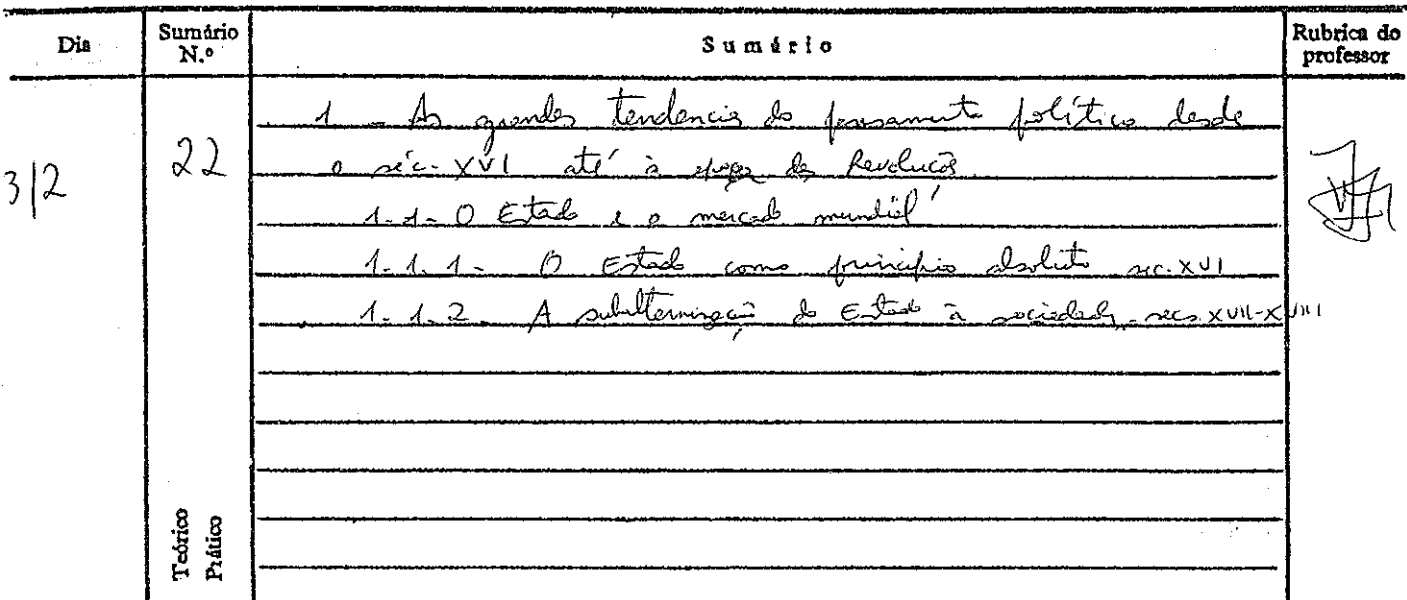 Dia
Sumário N.º
Sumário
Rubrica do professor
3/2
22
1 - As grandes tendencias do pensamento político desde
o séc. XVI até à epoca das Revoluções
1.1- O Estado e o mercado mundial
1.1.1- O Estado como princípio absoluto sec. XVI
1.1.2. A subalternização do Estado à sociedade - secs XVII-XVIII
Teórico
Prático